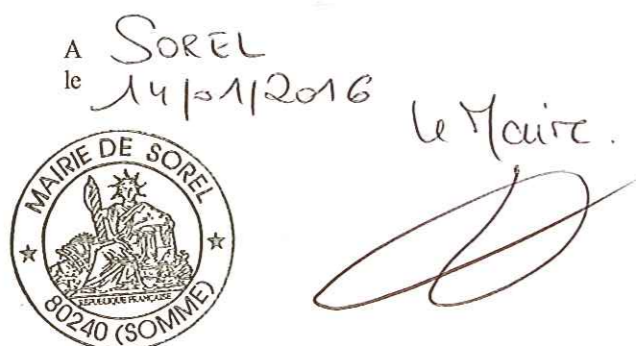 A SOREL
le 14/01/2016
le Maire.
MAIRIE DE SOREL
RÉPUBLIQUE FRANÇAISE
80240 (SOMME)